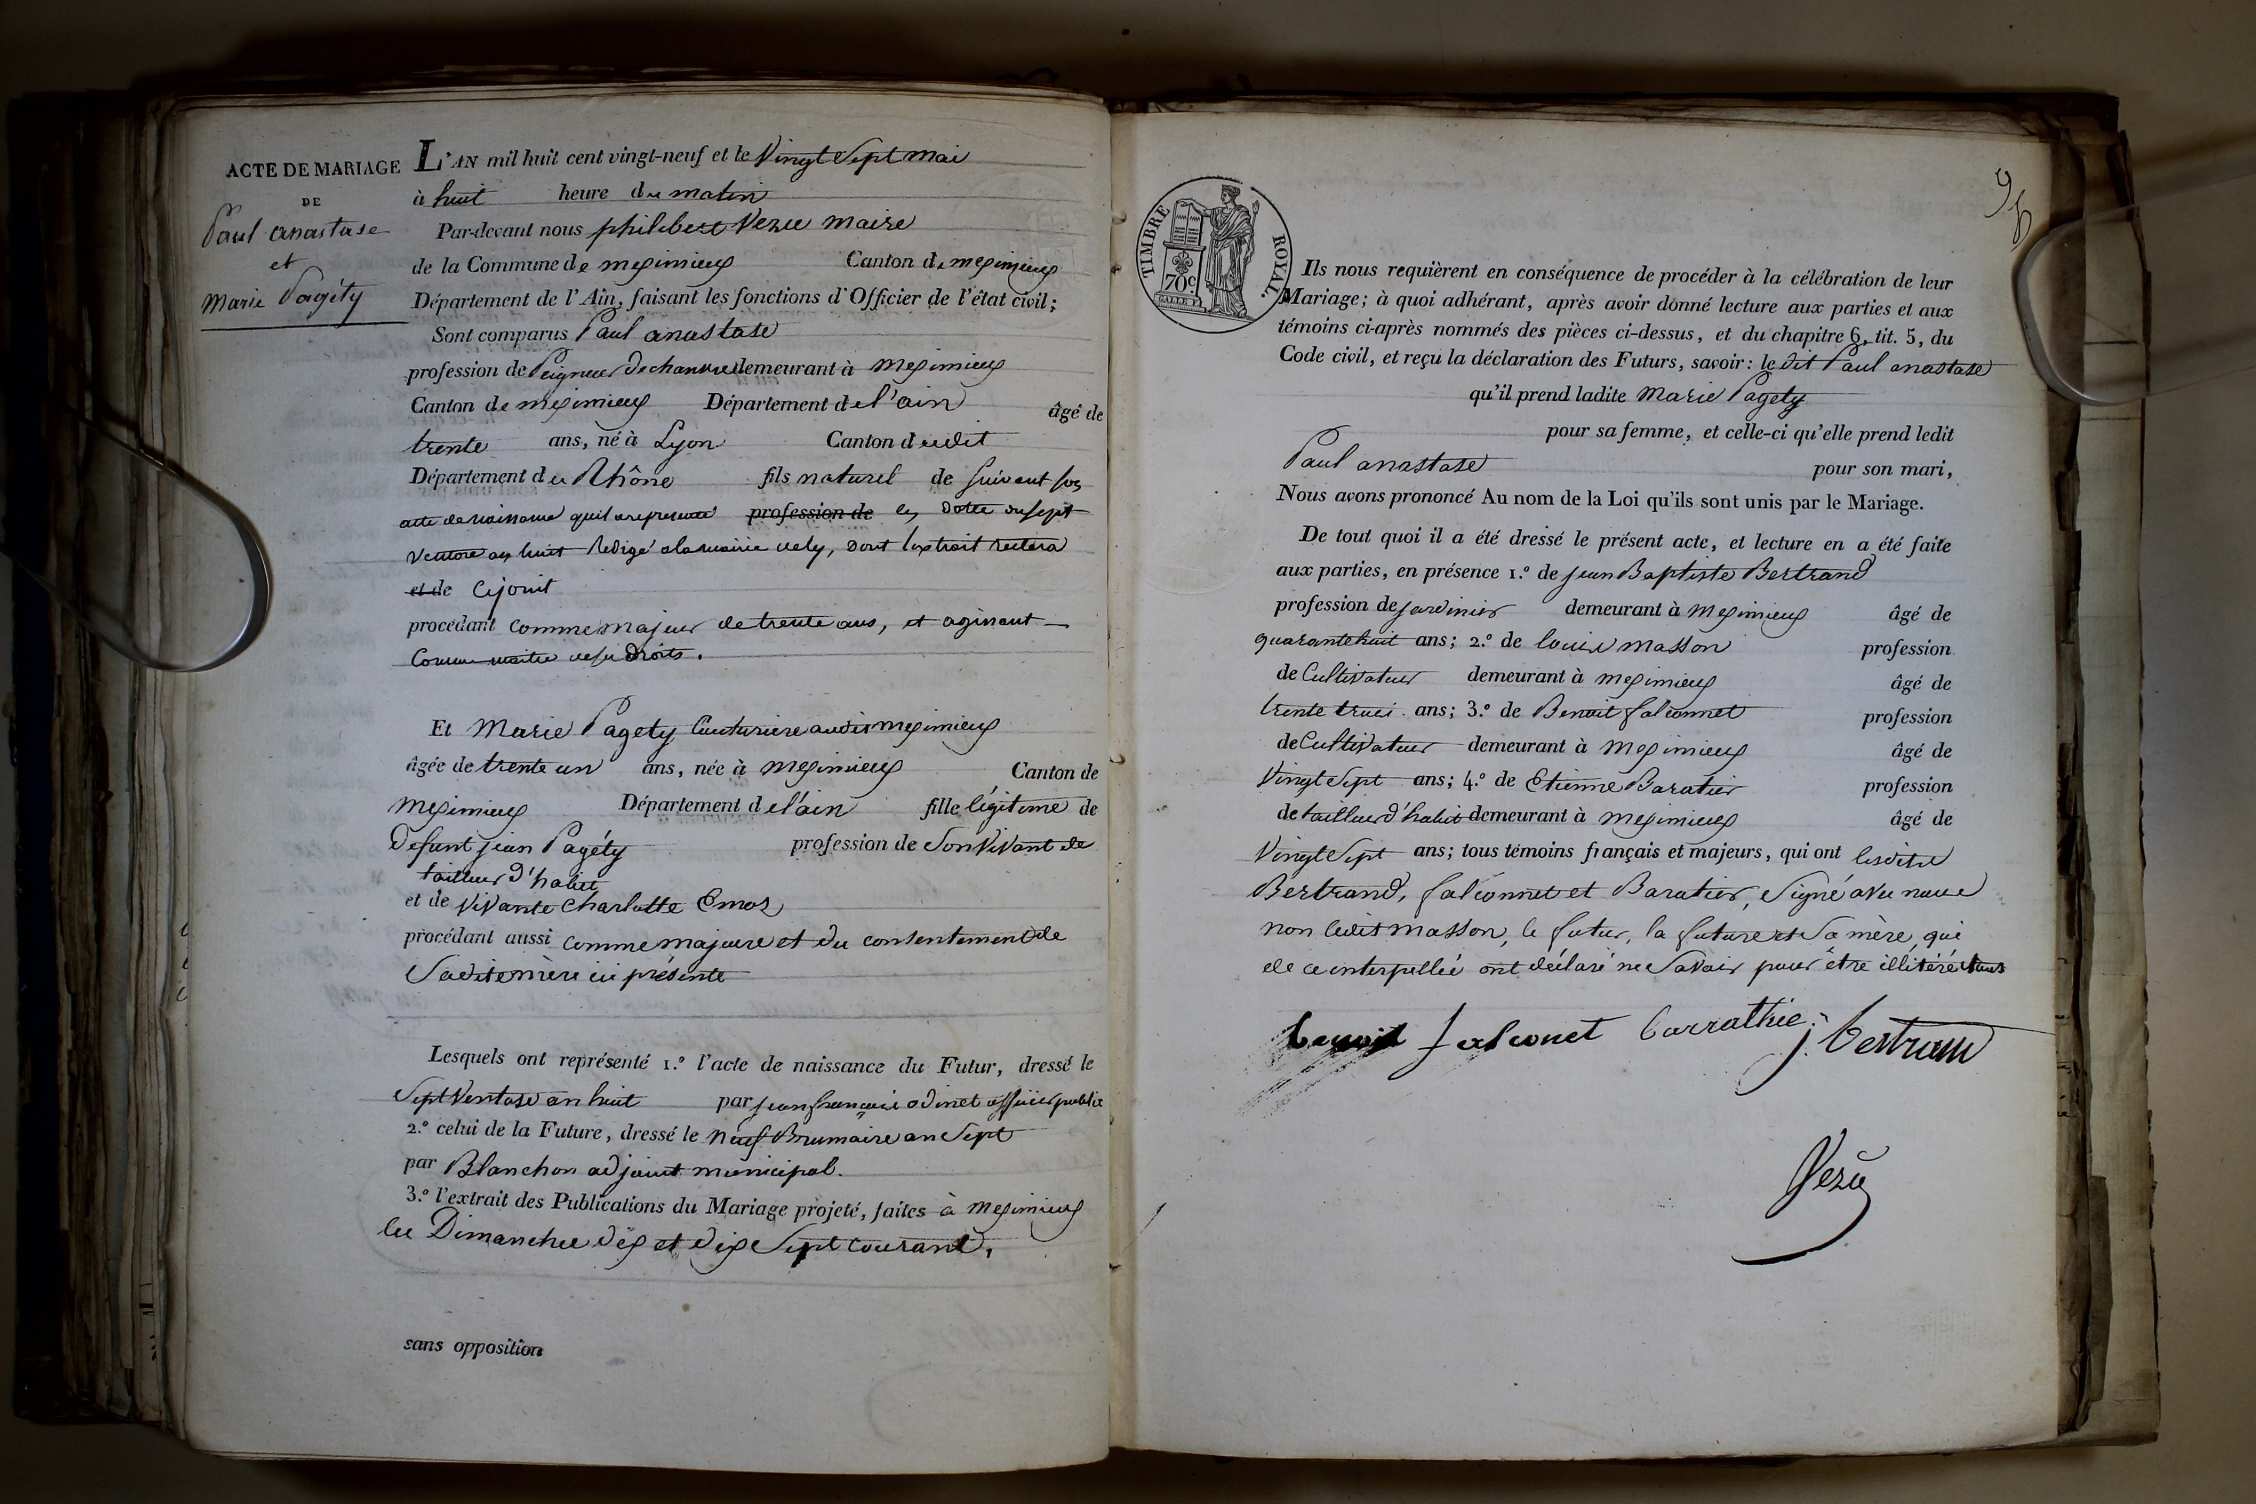 ACTE DE MARIAGE
DE
Paul anastase
et
Marie Pagéty
L'AN mil huit cent vingt-neuf et le Vingt Sept mai
à huit heure du matin
Par-devant nous philibert Vezu maire
de la Commune de meximieux Canton de meximieux
Département de l'Ain, faisant les fonctions d'Officier de l'état civil;
Sont comparus Paul anastase
profession de Peigneur de chanvre demeurant à meximieux
Canton de meximieux Département de l'ain âgé de
trente ans, né à Lyon Canton dudit
Département du Rhône fils naturel de suivant son
acte de naissance qu'il a représenté profession de en datte du sept
Ventose an huit Rédigé a la mairie de Lyon, dont l'extrait restera
et de Cijoint
procédant comme majeur de trente ans, et agissant
Comme maitre de ses droits.
Et Marie Pagety Couturiere audit meximieux
âgée de trente un ans, née à meximieux Canton de
meximieux Département de l'ain fille légitime de
Defunt jean Pagéty profession de Son Vivant de
tailleur d'habit
et de Vivante Charlotte Emoz
procédant aussi comme majeure et du consentement de
Sadite mère ici présente
Lesquels ont représenté 1.º l'acte de naissance du Futur, dressé le
Sept Ventose an huit par jean françois odinet officier public
2.º celui de la Future, dressé le Neuf Brumaire an Sept
par Blanchon adjoint municipal.
3.º l'extrait des Publications du Mariage projeté, faites à meximieux
les Dimanches dix et dix Sept courant,
sans opposition
96
TIMBRE ROYAL.
70 c.
Ils nous requièrent en conséquence de procéder à la célébration de leur
Mariage; à quoi adhérant, après avoir donné lecture aux parties et aux
témoins ci-après nommés des pièces ci-dessus, et du chapitre 6, tit. 5, du
Code civil, et reçu la déclaration des Futurs, savoir: ledit Paul anastase
qu'il prend ladite Marie Pagety
pour sa femme, et celle-ci qu'elle prend ledit
Paul anastase pour son mari,
Nous avons prononcé Au nom de la Loi qu'ils sont unis par le Mariage.
De tout quoi il a été dressé le présent acte, et lecture en a été faite
aux parties, en présence 1.º de jean Baptiste Bertrand
profession de jardinier demeurant à meximieux âgé de
quarante huit ans; 2.º de louis masson profession
de Cultivateur demeurant à meximieux âgé de
trente trois ans; 3.º de Benoit falconnet profession
de Cultivateur demeurant à meximieux âgé de
Vingt Sept ans; 4.º de Etienne Baratier profession
de tailleur d'habit demeurant à meximieux âgé de
Vingt Sept ans; tous témoins français et majeurs, qui ont lesdits
Bertrand, falconnet et Baratier, Signé avec nous
non ledit masson, le futur, la future et Sa mère, qui
de ce interpellés ont déclaré ne Savoir pour être illitérés tous
benoit falconet barrathie j. bertrand
Vezu